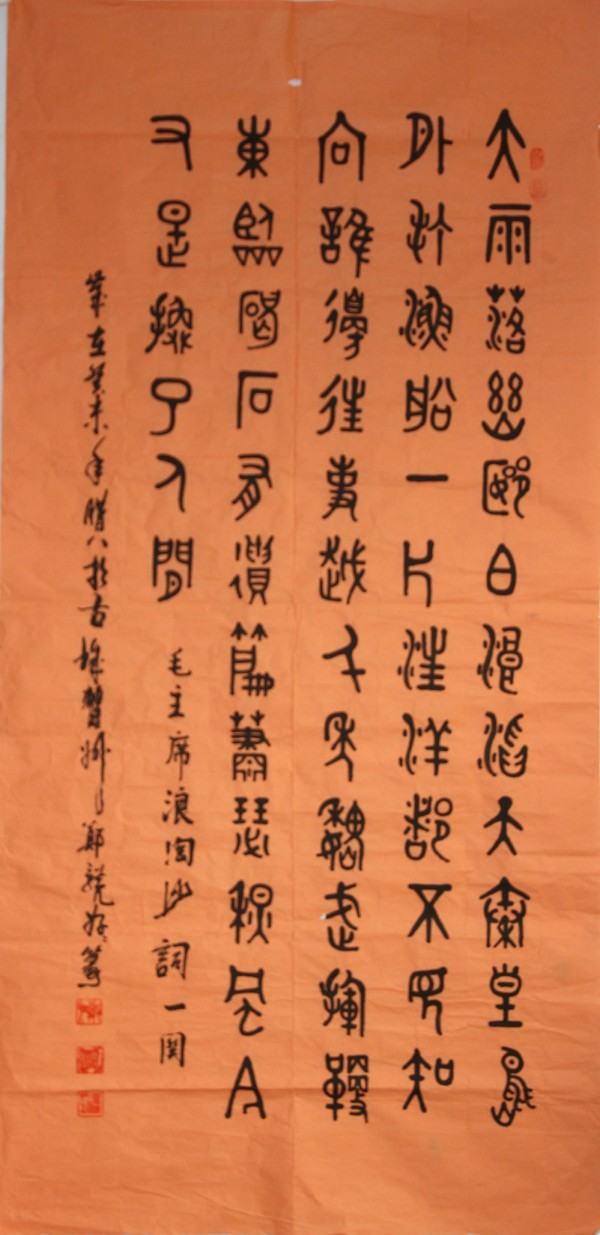 大雨落幽燕白浪滔天秦皇島
外打漁船一片汪洋都不見知
向誰邊往事越千年魏武揮鞭
東臨碣石有遺篇蕭瑟穐風今
又是換了人間 毛主席浪淘沙詞一闋
歲在癸未年腊八於古雄 州 鄭 篆